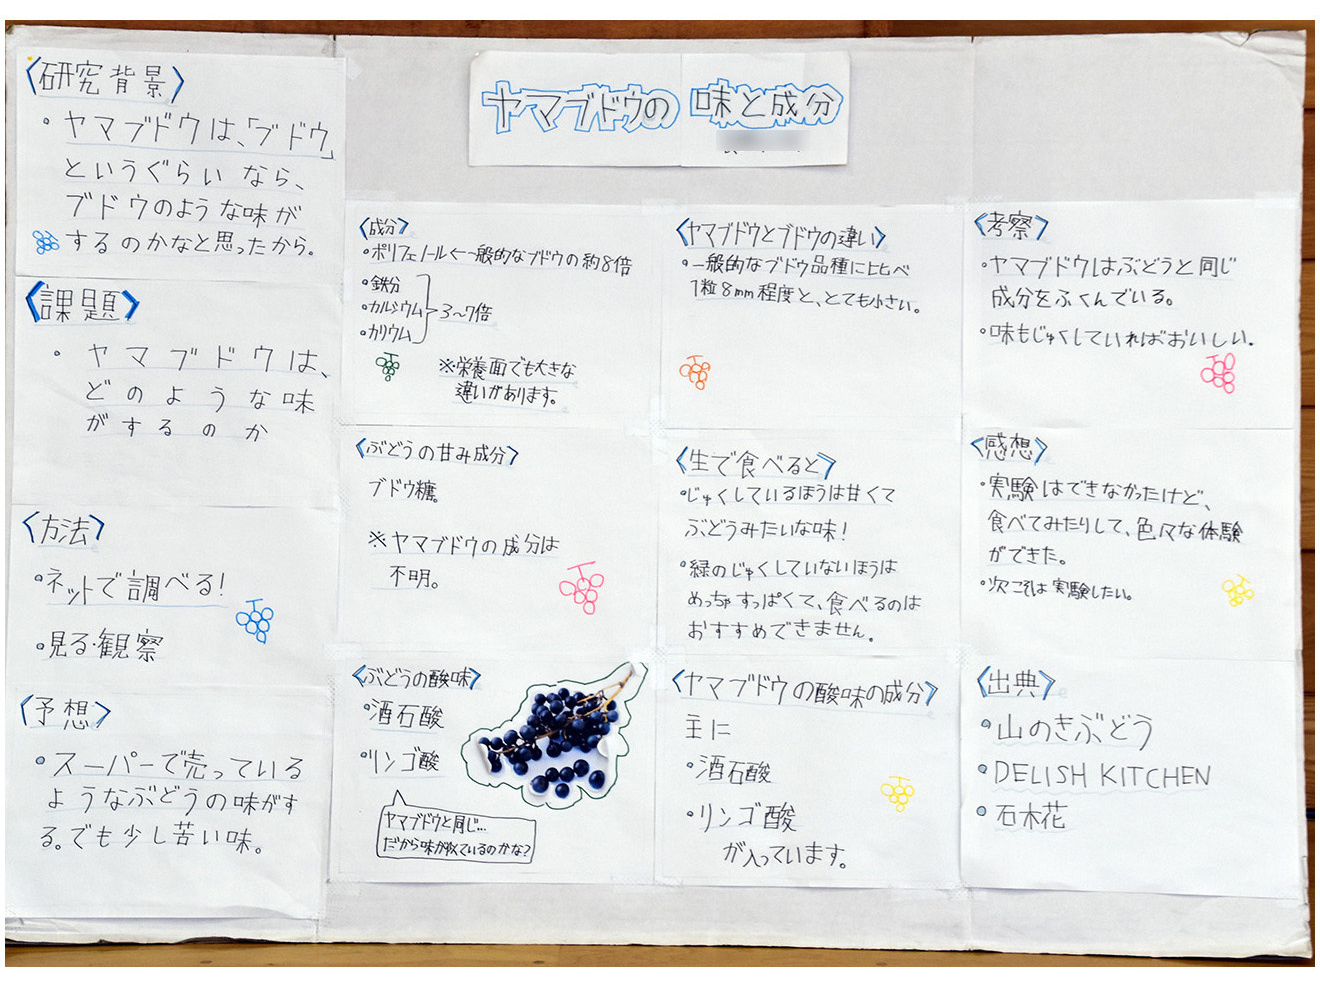 ヤマブドウの 味と成分
〈研究背景〉
・ヤマブドウは、「ブドウ」
というぐらいなら、
ブドウのような味が
するのかなと思ったから。
〈課題〉
・ヤマブドウは、
どのような味
がするのか
〈方法〉
・ネットで調べる!
・見る・観察
〈予想〉
・スーパーで売っている
ようなぶどうの味がす
る。でも少し苦い味。
〈成分〉
・ポリフェノール←一般的なブドウの約8倍
・鉄分
・カルシウム 3〜7倍
・カリウム
※栄養面でも大きな
違いがあります。
〈ぶどうの甘み成分〉
ブドウ糖。
※ヤマブドウの成分は
不明。
〈ぶどうの酸味〉
・酒石酸
・リンゴ酸
ヤマブドウと同じ…
だから味が似ているのかな?
〈ヤマブドウとブドウの違い〉
・一般的なブドウ品種に比べ
1粒8mm程度と、とても小さい。
〈生で食べると〉
・じゅくしているほうは甘くて
ぶどうみたいな味!
・緑のじゅくしていないほうは
めっちゃすっぱくて、食べるのは
おすすめできません。
〈ヤマブドウの酸味の成分〉
主に
・酒石酸
・リンゴ酸
が入っています。
〈考察〉
・ヤマブドウはぶどうと同じ
成分をふくんでいる。
・味もじゅくしていればおいしい。
〈感想〉
・実験はできなかったけど、
食べてみたりして、色々な体験
ができた。
・次こそは実験したい。
〈出典〉
・山のきぶどう
・DELISH KITCHEN
・石木花